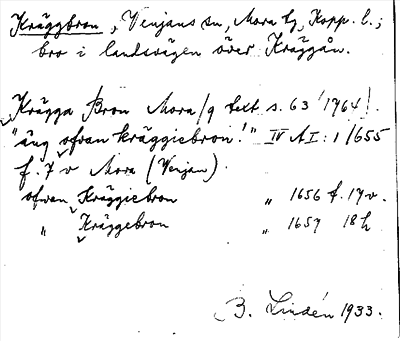 Kräggbron, Venjans sn, Mora tg, Kopp. l.;
bro i landsvägen över Kräggån.
Krägga Bron Mora/q text s. 63 (1764).
"äng ofvan kräggiebron!" IV A I: 1/655
f. 7 v Mora (Venjan).
ofvan Kräggiebron " 1656 f. 17 v.
" Kräggebron " 1657 18 h
B. Lindén 1933.